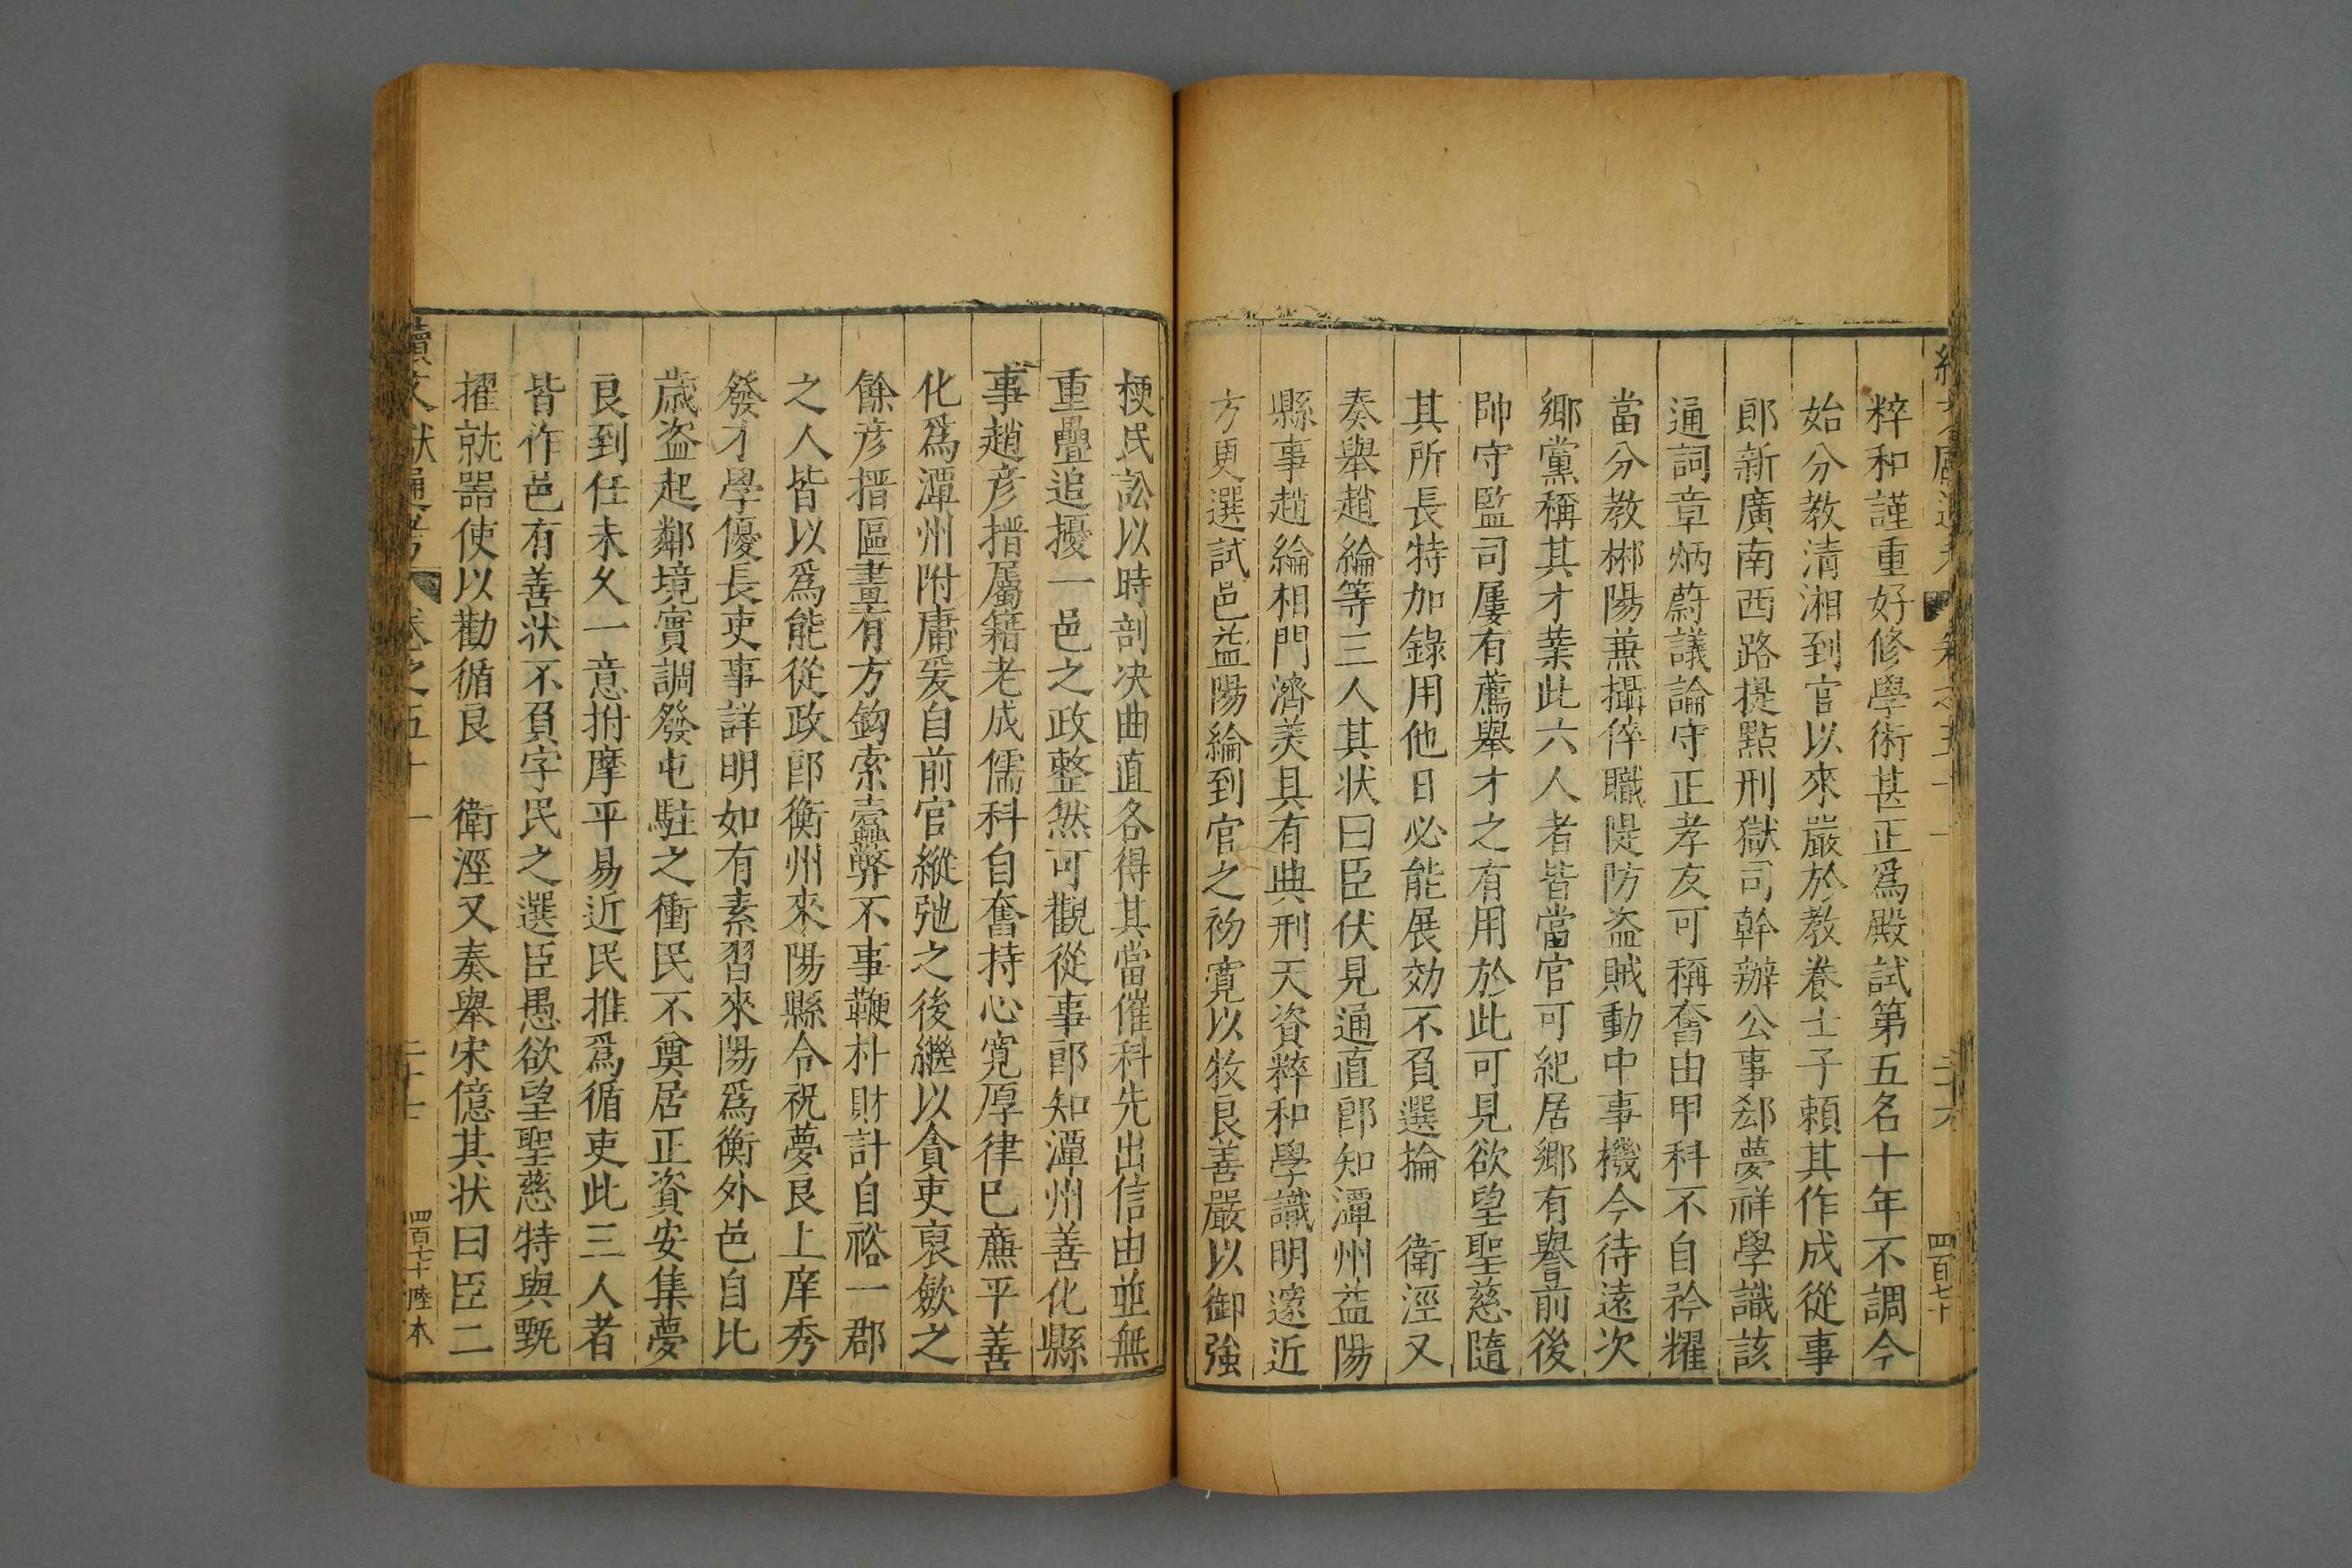 粹和謹重好修學術甚正爲殿試第五名十年不調今
始分教清湘到官以來嚴於教養士子賴其作成從事
郎新廣南西路提點刑獄司幹辦公事郄夢祥學識該
通詞章炳蔚議論守正孝友可稱奮由甲科不自矜耀
當分教郴陽兼攝倅職隄防盗賊動中事機今待遠次
鄉黨稱其才業此六人者皆當官可紀居鄉有譽前後
帥守監司屢有薦舉才之有用於此可見欲望聖慈隨
其所長特加錄用他日必能展効不負選掄　衛涇又
奏舉趙綸等三人其状曰臣伏見通直郎知潭州益陽
縣事趙綸相門濟美具有典刑天資粹和學識明邃近
方更選試邑益陽綸到官之初寛以牧良善嚴以御強
梗民訟以時剖决曲直各得其當催科先出信由並無
重疊追擾一邑之政整然可觀從事郎知潭州善化縣
事趙彦搢屬籍老成儒科自奮持心寛厚律已廉平善
化爲潭州附庸爰自前官縱弛之後繼以貪吏裒斂之
餘彦搢區畫有方鈎索蠧弊不事鞭朴財計自裕一郡
之人皆以爲能從政郎衡州來陽縣令祝夢良上庠秀
發才學優長吏事詳明如有素習來陽爲衡外邑自比
歲盗起鄰境實調發屯駐之衝民不奠居正資安集夢
良到任未久一意拊摩平易近民推爲循吏此三人者
皆作邑有善状不負字民之選臣愚欲望聖慈特與甄
擢就噐使以勸循良　衛涇又奏舉宋億其状曰臣二
續文獻通考　卷之五十一　二十七　四百七十　陸本